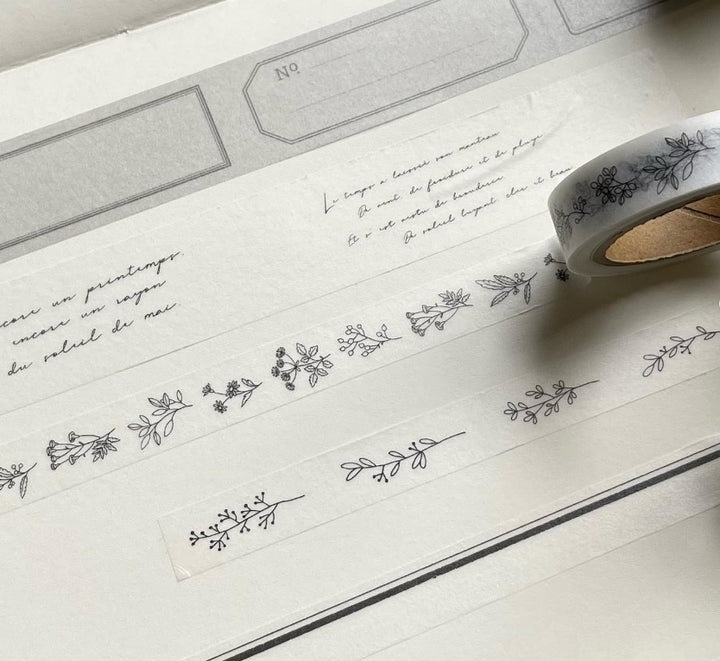 No
Le temps a laissé son manteau
De vent de froidure et de pluye
Et s'est vestu de brouderie
De soleil luyant cler et beau
encore un printemps
encore un rayon
du soleil de mai